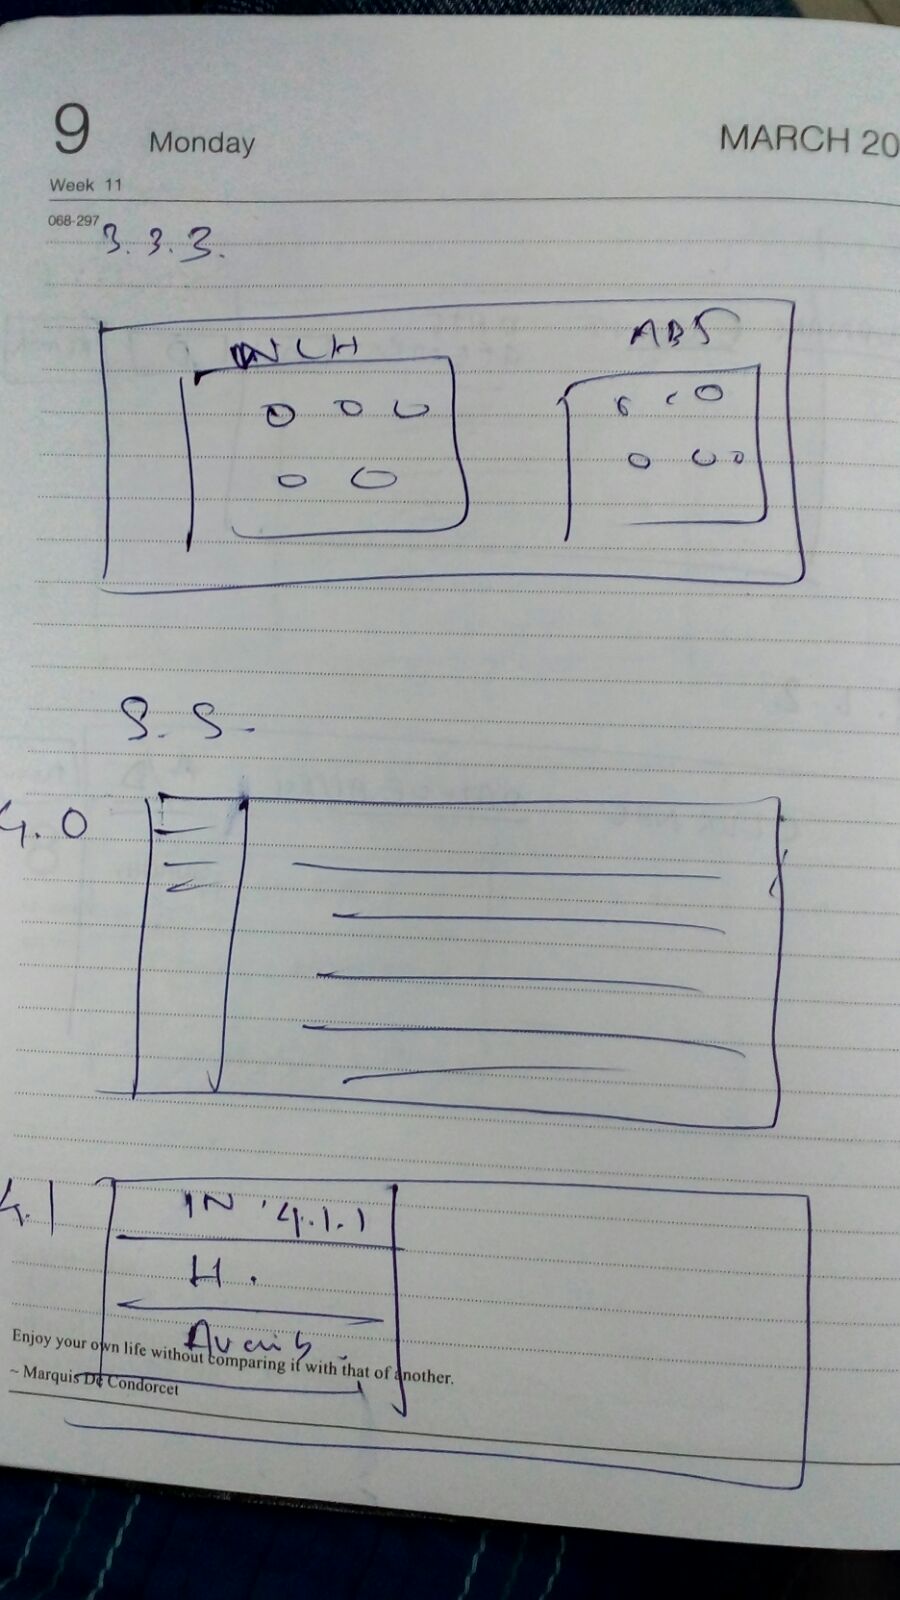 9 Monday MARCH 20
Week 11
068-297
3.3.3.
S.S.
4.0
4.1
IN 4.1.1
H.
Enjoy your own life without comparing it with that of another.
~ Marquis De Condorcet